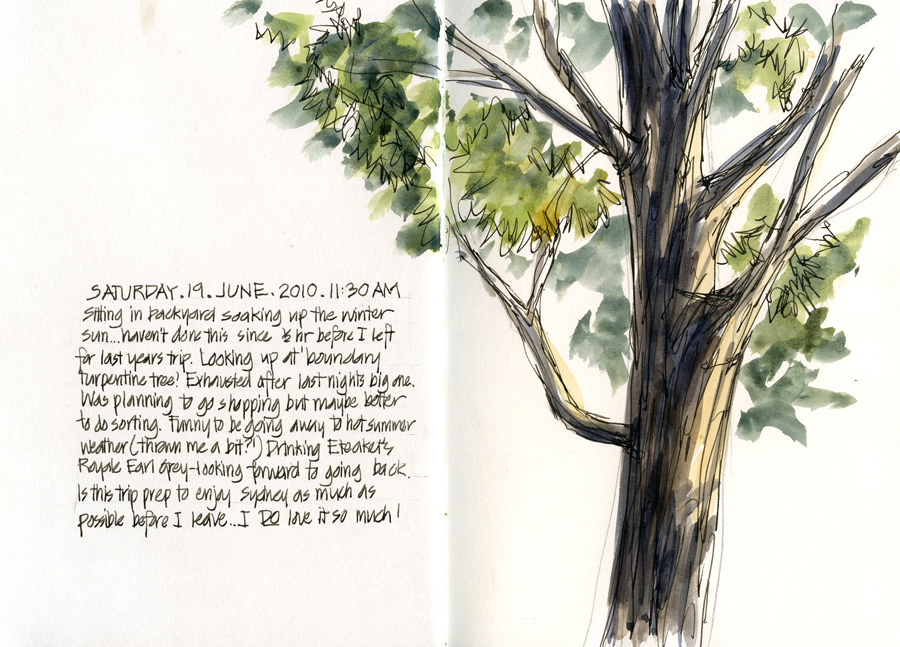 SATURDAY.19.JUNE.2010.11:30 AM
Sitting in backyard soaking up the winter
sun...haven't done this since ½ hr before I left
for last years trip. Looking up at 'boundary
turpentine tree! Exhausted after last nights big one.
Was planning to go shopping but maybe better
to do sorting. Funny to be going away to hot summer
weather (thrown me a bit?!) Drinking
Royale Earl Grey - looking forward to going back.
Is this trip prep to enjoy Sydney as much as
possible before I leave...I DO love it so much!